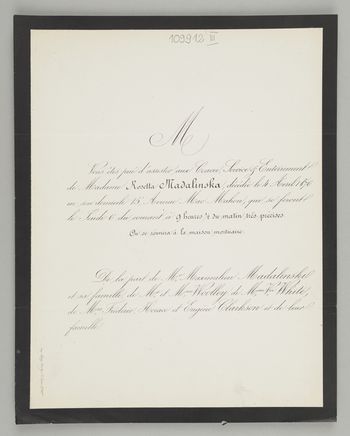 109912 III
M
Vous êtes prié d'assister aux Convoi, Service & Enterrement
de Madame Rosetta Madalinska, décédée le 4 Avril 1876
en son domicile 15 Avenue Mac-Mahon, qui se feront
le Jeudi 6 du courant à 9 heures ½ du matin très précises.
On se réunira à la maison mortuaire.
De la part de Mr. Maximilien Madalinski
et sa famille, de Mr. et Mme. Woolley, de Mme. Vve. White,
de MM. Frédéric, Horace et Eugène Clarkson et de leur
famille.